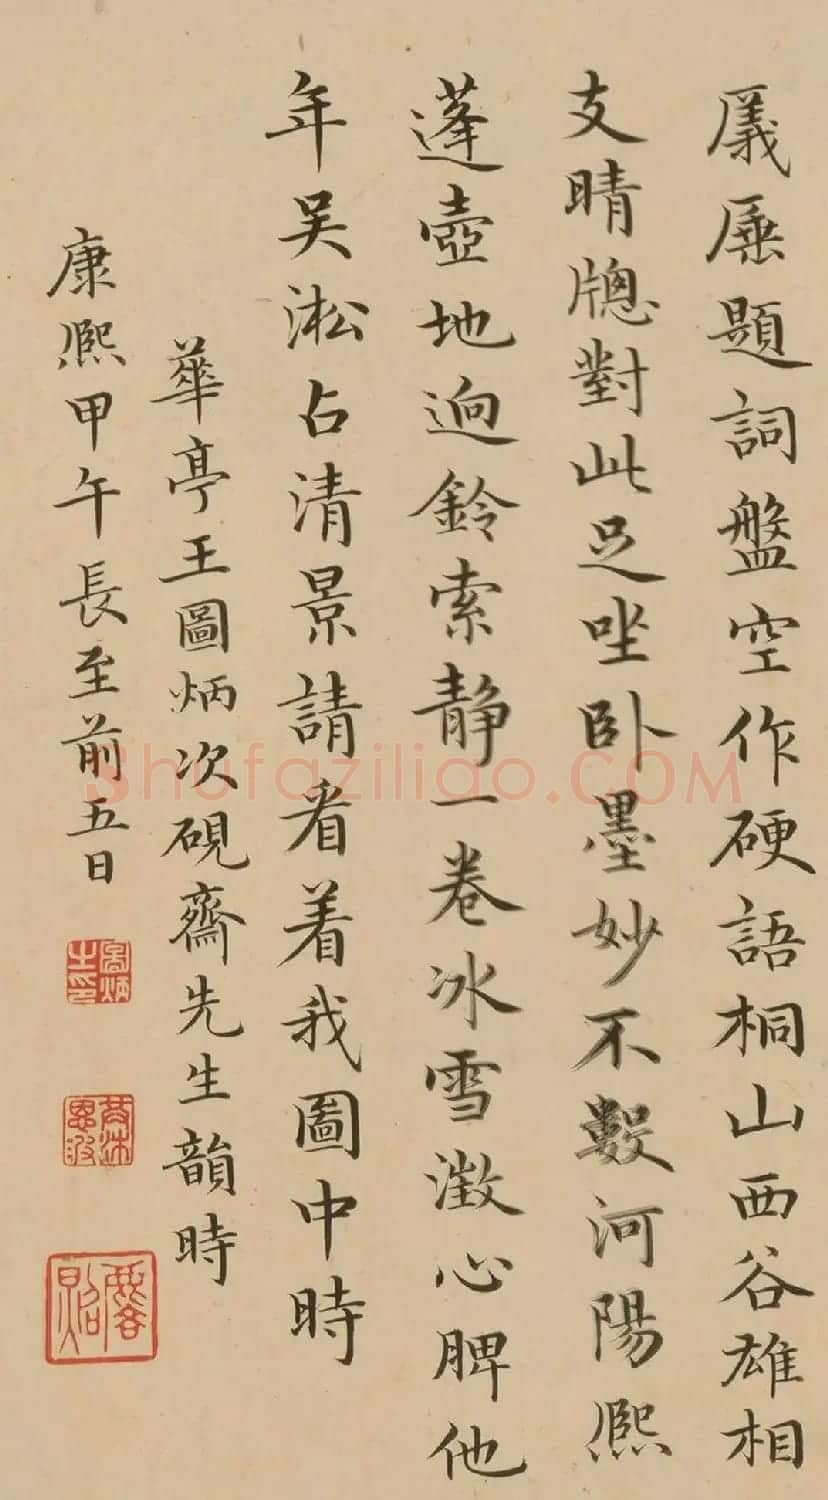 㕒厜題詞盤空作硬語桐山西谷雄相
支晴牕對此足坐卧墨妙不數河陽熙
蓬壺地迥鈴索静一卷冰雪澂心脾他
年吴淞占清景請看着我圖中時
華亭王圖炳次硯齋先生韻時
康熙甲午長至前五日
圖炳之印
Shufaziliao.COM